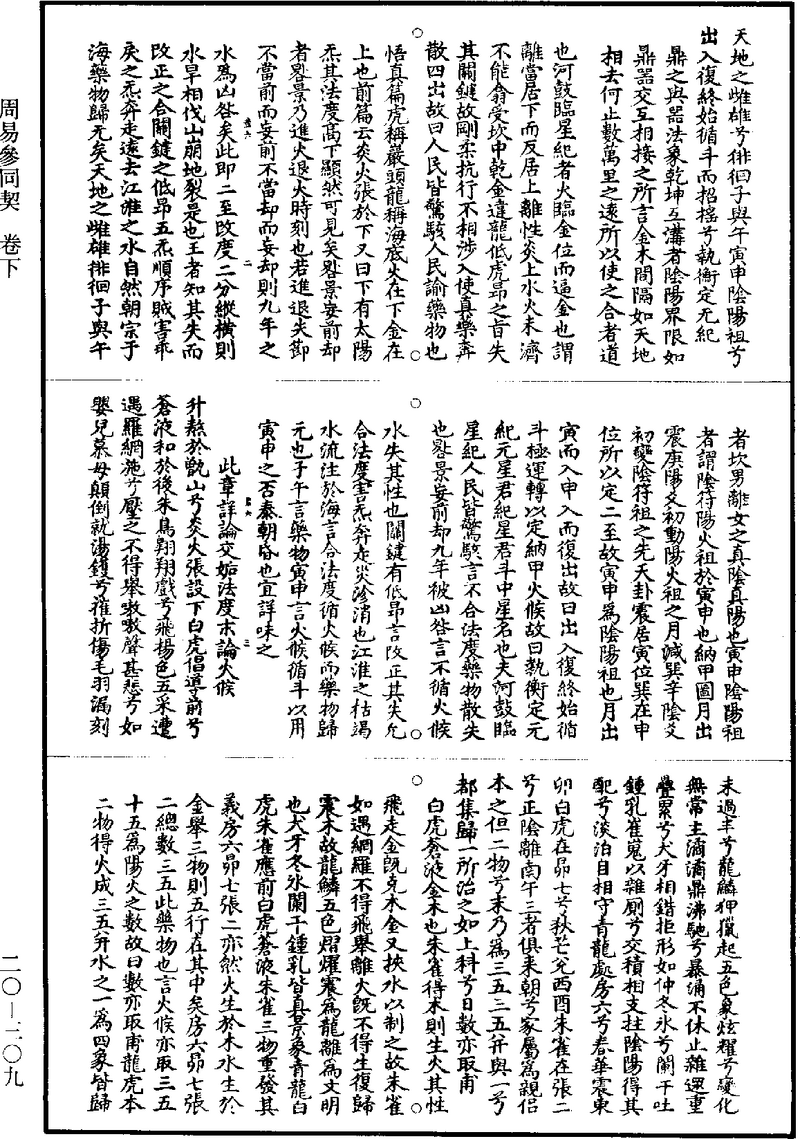 天地之雌雄兮徘徊子與午寅申陰陽祖兮
出入復終始循斗而招搖兮執衡定元紀
鼎之與器法象乾坤互講者陰陽界限如
鼎器交互相接之所言金木間隔如天地
相去何止數萬里之遠所以使之合者道
也河鼓臨星紀者火臨金位而逼金也謂
離當居下而反居上離性炎上水火未濟
不能翕受坎中乾金違龍低虎昂之旨失
其關鍵故剛柔抗行不相涉入使真藥奔
散四出故曰人民皆驚駭人民諭藥物也
悟真篇虎稱嚴頭龍稱海底火在下金在
上也前篇云炎火張於下又曰下有太陽
炁其法度高下顯然可見矣晷景妄前却
者晷景乃進火退火時刻也若進退失節
不當前而妄前不當却而妄却則九年之
水為凶咎矣此即二至改度二分縱橫則
水旱相伐山崩地裂是也王者知其失而
改正之合關鍵之低昂五炁順序賊害乖
戾之炁奔走遠去江淮之水自然朝宗于
海藥物歸元矣天地之雌雄徘徊子與午
者坎男離女之真陰真陽也寅申陰陽祖
者謂陰符陽火祖於寅申也納甲圖月出
震庚陽爻初動陽火祖之月減巽辛陰爻
初變陰符祖之先天卦震居寅位巽在申
位所以定二至故寅申為陰陽祖也月出
寅而入申入而復出故曰出入復終始循
斗極運轉以定納甲火候故曰執衡定元
紀元星君紀星君斗中星名也夫河鼓臨
星紀人民皆驚駭言不合法度藥物散失
也晷景妄前却九年被凶咎言不循火候
水失其性也關鍵有低昂言改正其失允
合法度害炁奔走災沴消也江淮之枯竭
水流注於海言合法度循火候而藥物歸
元也子午言藥物寅申言火候循斗以用
寅申之否泰朝昏也宜詳味之
此章詳論交姤法度末論火候
升熬於甑山兮炎火張設下白虎倡導前兮
蒼液和於後朱鳥翔翔戲兮飛揚色五采遭
遇羅網施兮壓之不得舉嗷嗷聲甚悲兮如
嬰兒慕母顛倒就湯鑊兮摧折傷毛羽漏刻
未過半兮龍鱗狎獵起五色象炫耀兮變化
無常主滴滴鼎沸馳兮暴涌不休止雜遝重
疊累兮犬牙相錯拒形如仲冬氷兮闌干吐
鍾乳崔嵬以雜厠兮交積相支拄陰陽得其
配兮淡泊自相守青龍處房六兮春華震東
卯白虎在昴七兮秋芒兌西酉朱雀在張二
兮正陰離南午三者俱來朝兮家屬為親侶
本之但二物兮末乃為三五三五并與一兮
都集歸一所治之如上科兮日數亦取甫
白虎蒼液金木也朱雀得木則生火其性
飛走金既克木金又挾水以制之故朱雀
如遇網羅不得飛舉離火既不得生復歸
震木故龍鱗五色熠燿震為龍離為文明
也犬牙冬氷闌干鍾乳皆真景象青龍白
虎朱雀應前白虎蒼液朱雀三物重發其
義房六昴七張二亦然火生於木水生於
金舉三物則五行在其中矣房六昴七張
二總數三五此藥物也言火候亦取三五
十五為陽火之數故曰數亦取甫龍虎本
二物得火成三五并水之一為四象皆歸
周易參同契 卷下
二〇—二〇九